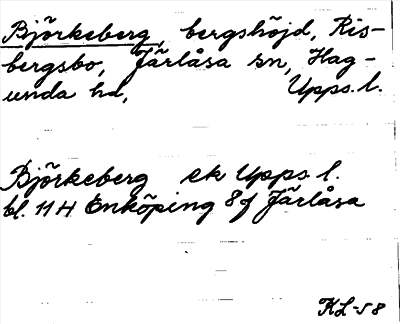 Björkeberg, bergshöjd, Ris-
bergsbo, Järlåsa sn, Hag-
unda hd, Upps. l.
Björkeberg ek Upps l.
bl. 11 H Enköping 8 f Järlåsa
KL-58